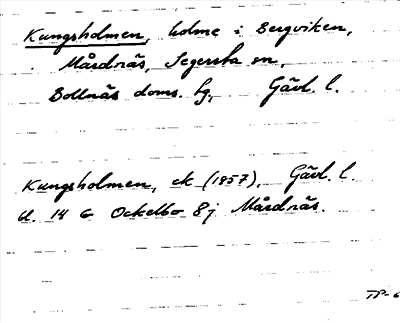 Kungsholmen, holme i Bergviken,
Mårdnäs, Segersta sn,
Bollnäs doms. fg, Gävl. l.
Kungsholmen, ek (1957), Gävl. l.
bl. 14 G Ockelbo 8j Mårdnäs.